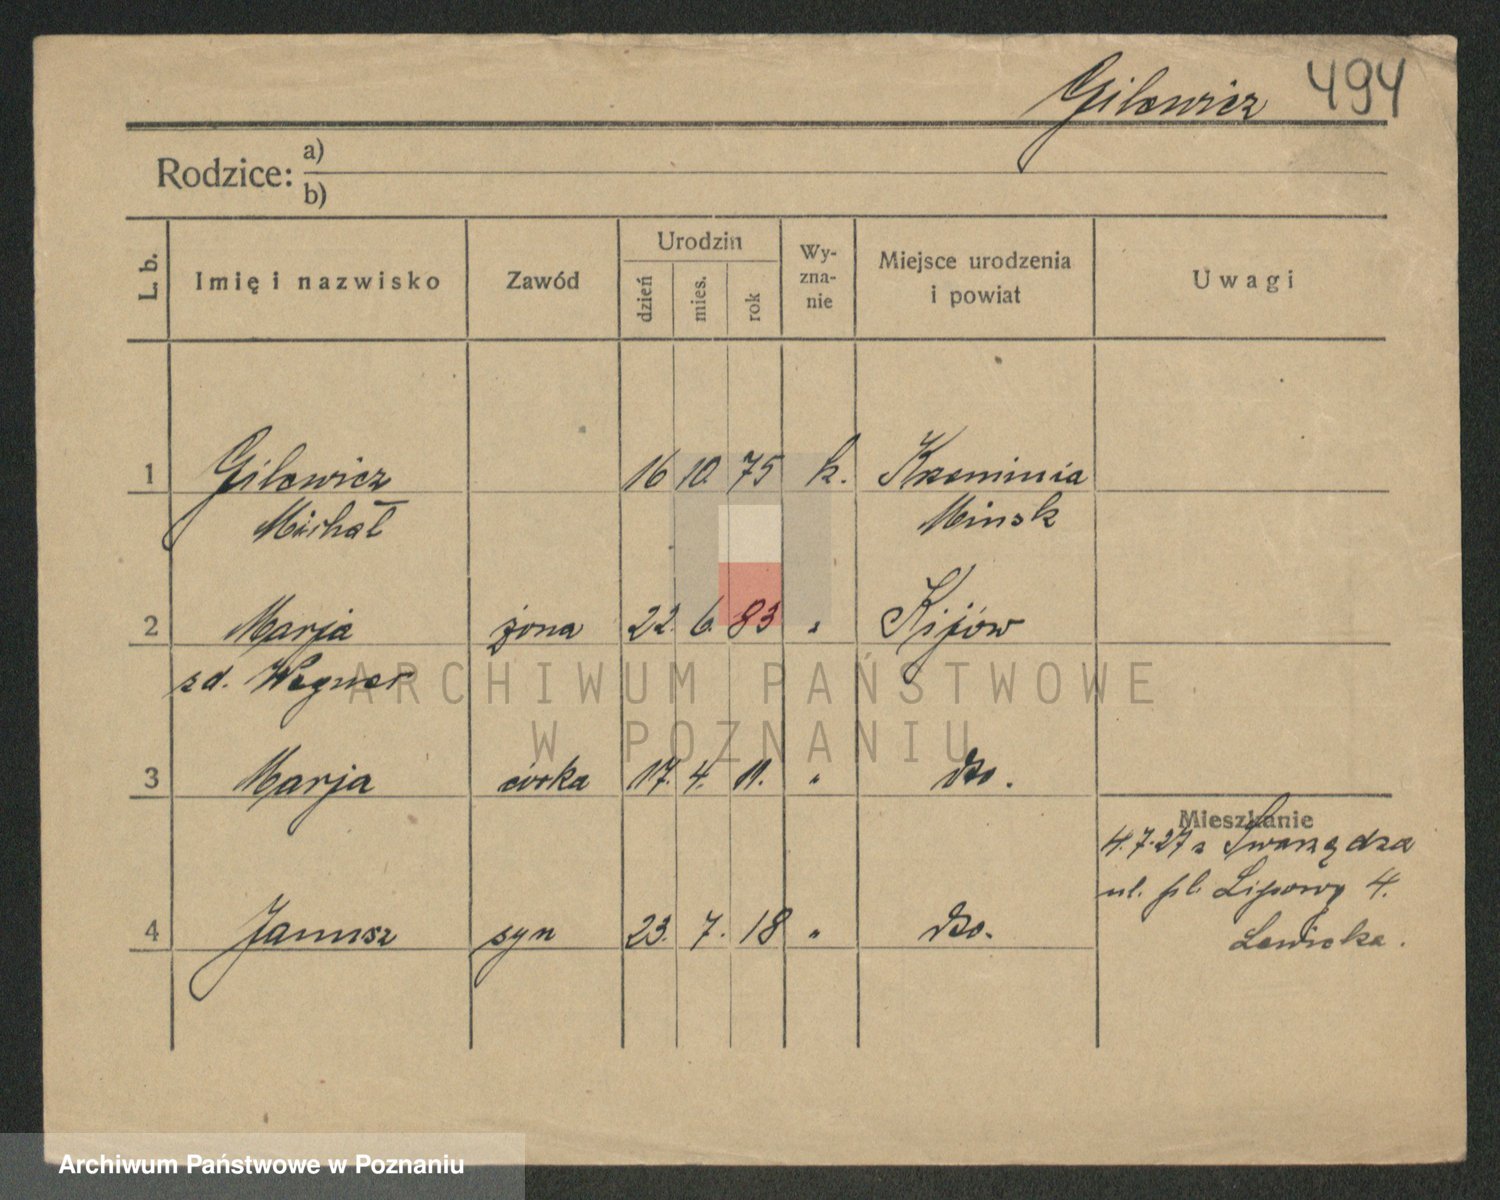 Gilewicz 494
Rodzice: a)
b)
L. b.
Imię i nazwisko
Zawód
Urodzin
dzień
mies.
rok
Wy-
zna-
nie
Miejsce urodzenia
i powiat
Uwagi
1 Gilewicz 16 10. 75 k. Krzeminia
Michał Minsk
2 Marja żona 22. 6. 83 " Kijów
zd. Wegner
3 Marja córka 17. 4. 11. " dto.
Mieszkanie
4.7.27 z Swarzędza
ul. pl. Lipowy 4.
4 Janusz syn 23. 7. 18 " dto.
Lewicka.
ARCHIWUM PAŃSTWOWE
W POZNANIU
Archiwum Państwowe w Poznaniu